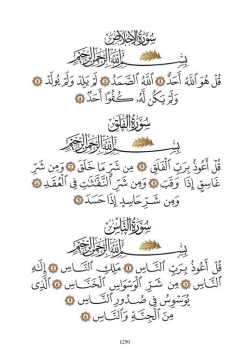 سُورَةُ الإِخْلَاصِ
بِسْمِ اللَّهِ الرَّحْمَٰنِ الرَّحِيمِ
قُلْ هُوَ اللَّهُ أَحَدٌ ١ اللَّهُ الصَّمَدُ ٢ لَمْ يَلِدْ وَلَمْ يُولَدْ ٣
وَلَمْ يَكُن لَّهُ كُفُوًا أَحَدٌ ٤
سُورَةُ الْفَلَقِ
بِسْمِ اللَّهِ الرَّحْمَٰنِ الرَّحِيمِ
قُلْ أَعُوذُ بِرَبِّ الْفَلَقِ ١ مِن شَرِّ مَا خَلَقَ ٢ وَمِن شَرِّ
غَاسِقٍ إِذَا وَقَبَ ٣ وَمِن شَرِّ النَّفَّاثَاتِ فِي الْعُقَدِ ٤
وَمِن شَرِّ حَاسِدٍ إِذَا حَسَدَ ٥
سُورَةُ النَّاسِ
بِسْمِ اللَّهِ الرَّحْمَٰنِ الرَّحِيمِ
قُلْ أَعُوذُ بِرَبِّ النَّاسِ ١ مَلِكِ النَّاسِ ٢ إِلَٰهِ
النَّاسِ ٣ مِن شَرِّ الْوَسْوَاسِ الْخَنَّاسِ ٤ الَّذِي
يُوَسْوِسُ فِي صُدُورِ النَّاسِ ٥
مِنَ الْجِنَّةِ وَالنَّاسِ ٦
1250